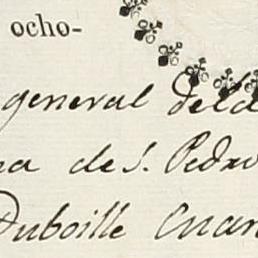 ocho-
general dela
na de S. Pedro
Duboille Cuan